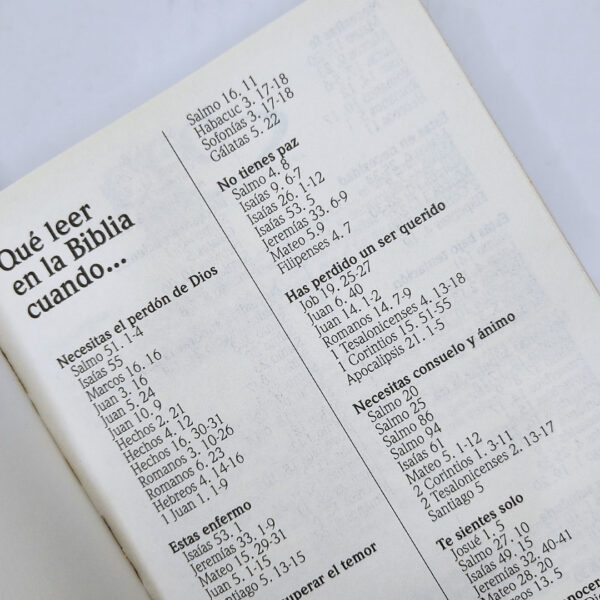 Qué leer
en la Biblia
cuando...
Necesitas el perdón de Dios
Salmo 51. 1-4
Isaías 55
Marcos 16. 16
Juan 3. 16
Juan 5. 24
Juan 10. 9
Hechos 2. 21
Hechos 4. 12
Hechos 16. 30-31
Romanos 3. 10-26
Romanos 6. 23
Hebreos 4. 14-16
1 Juan 1. 1-9
Estas enfermo
Isaías 53. 1
Jeremías 33. 1-9
Mateo 15. 29-31
Juan 5. 1-15
Santiago 5. 13-15
el temor
Salmo 16. 11
Habacuc 3. 17-18
Sofonías 3. 17-18
Gálatas 5. 22
No tienes paz
Salmo 4. 8
Isaías 9. 6-7
Isaías 26. 1-12
Isaías 53. 5
Jeremías 33. 6-9
Mateo 5.9
Filipenses 4. 7
Has perdido un ser querido
Job 19. 25-27
Juan 6. 40
Juan 14. 1-2
Romanos 14. 7-9
1 Tesalonicenses 4. 13-18
1 Corintios 15. 51-55
Apocalipsis 21. 1-5
Necesitas consuelo y ánimo
Salmo 20
Salmo 25
Salmo 86
Salmo 94
Isaías 61
Mateo 5. 1-12
2 Corintios 1. 3-11
2 Tesalonicenses 2. 13-17
Santiago 5
Te sientes solo
Josué 1. 5
Salmo 27. 10
Isaías 49. 15
Jeremías 32. 40-41
Mateo 28. 20
13. 5